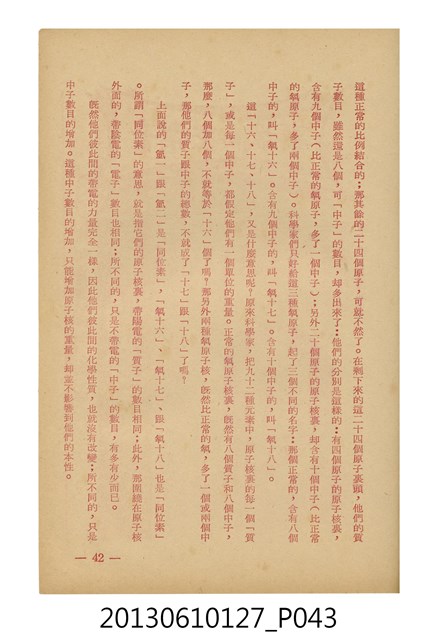 這種正常的比例結合的;那其餘的二十四個原子,可就不然了。在剩下來的這二十四個原子裏頭,他們的質
子數目,雖然還是八個,可「中子」的數目,却多出來了:他們的分別是這樣的:有四個原子的原子核裏,
含有九個中子(比正常的氧原子,多了一個中子);另外二十個原子的原子核裏,却含有十個中子(比正常
的氧原子,多了兩個中子)。科學家們只好給這三種氧原子,起了三個不同的名字:那個正常的,含有八個
中子的,叫「氧十六」。含有九個中子的,叫「氧十七」。含有十個中子的,叫「氧十八」。
這「十六、十七、十八」,又是什麼意思呢?原來科學家,把九十二種元素中,原子核裏的每一個「質
子」,或是每一個中子,都假定他們有一個單位的重量。正常的氧原子核裏,既然有八個質子和八個中子,
那麼,八個加八個,不就等於「十六」個了嗎?那另外兩種氧原子核,既然比正常的氧,多了一個或兩個中
子,那他們的質子跟中子的總數,不就成了「十七」跟「十八」了嗎?
上面說的「氫一」跟「氫二」是「同位素」,「氧十六」、「氧十七」、跟「氧十八」也是「同位素」
。所謂「同位素」的意思,就是指它們的原子核裏,帶陽電的「質子」的數目相同;此外,那圍繞在原子核
外面的,帶陰電的「電子」數目也相同;所不同的,只是不帶電的「中子」的數目,有多有少而已。
既然他們彼此間的帶電的力量完全一樣,因此他們彼此間的化學性質,也就沒有改變;所不同的,只是
中子數目的增加。這種中子數目的增加,只能增加原子核的重量,却並不影響到他們的本性。
— 42 —
20130610127_P043